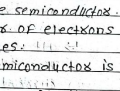 e semiconductor.
r of electrons
es:
miconductor is